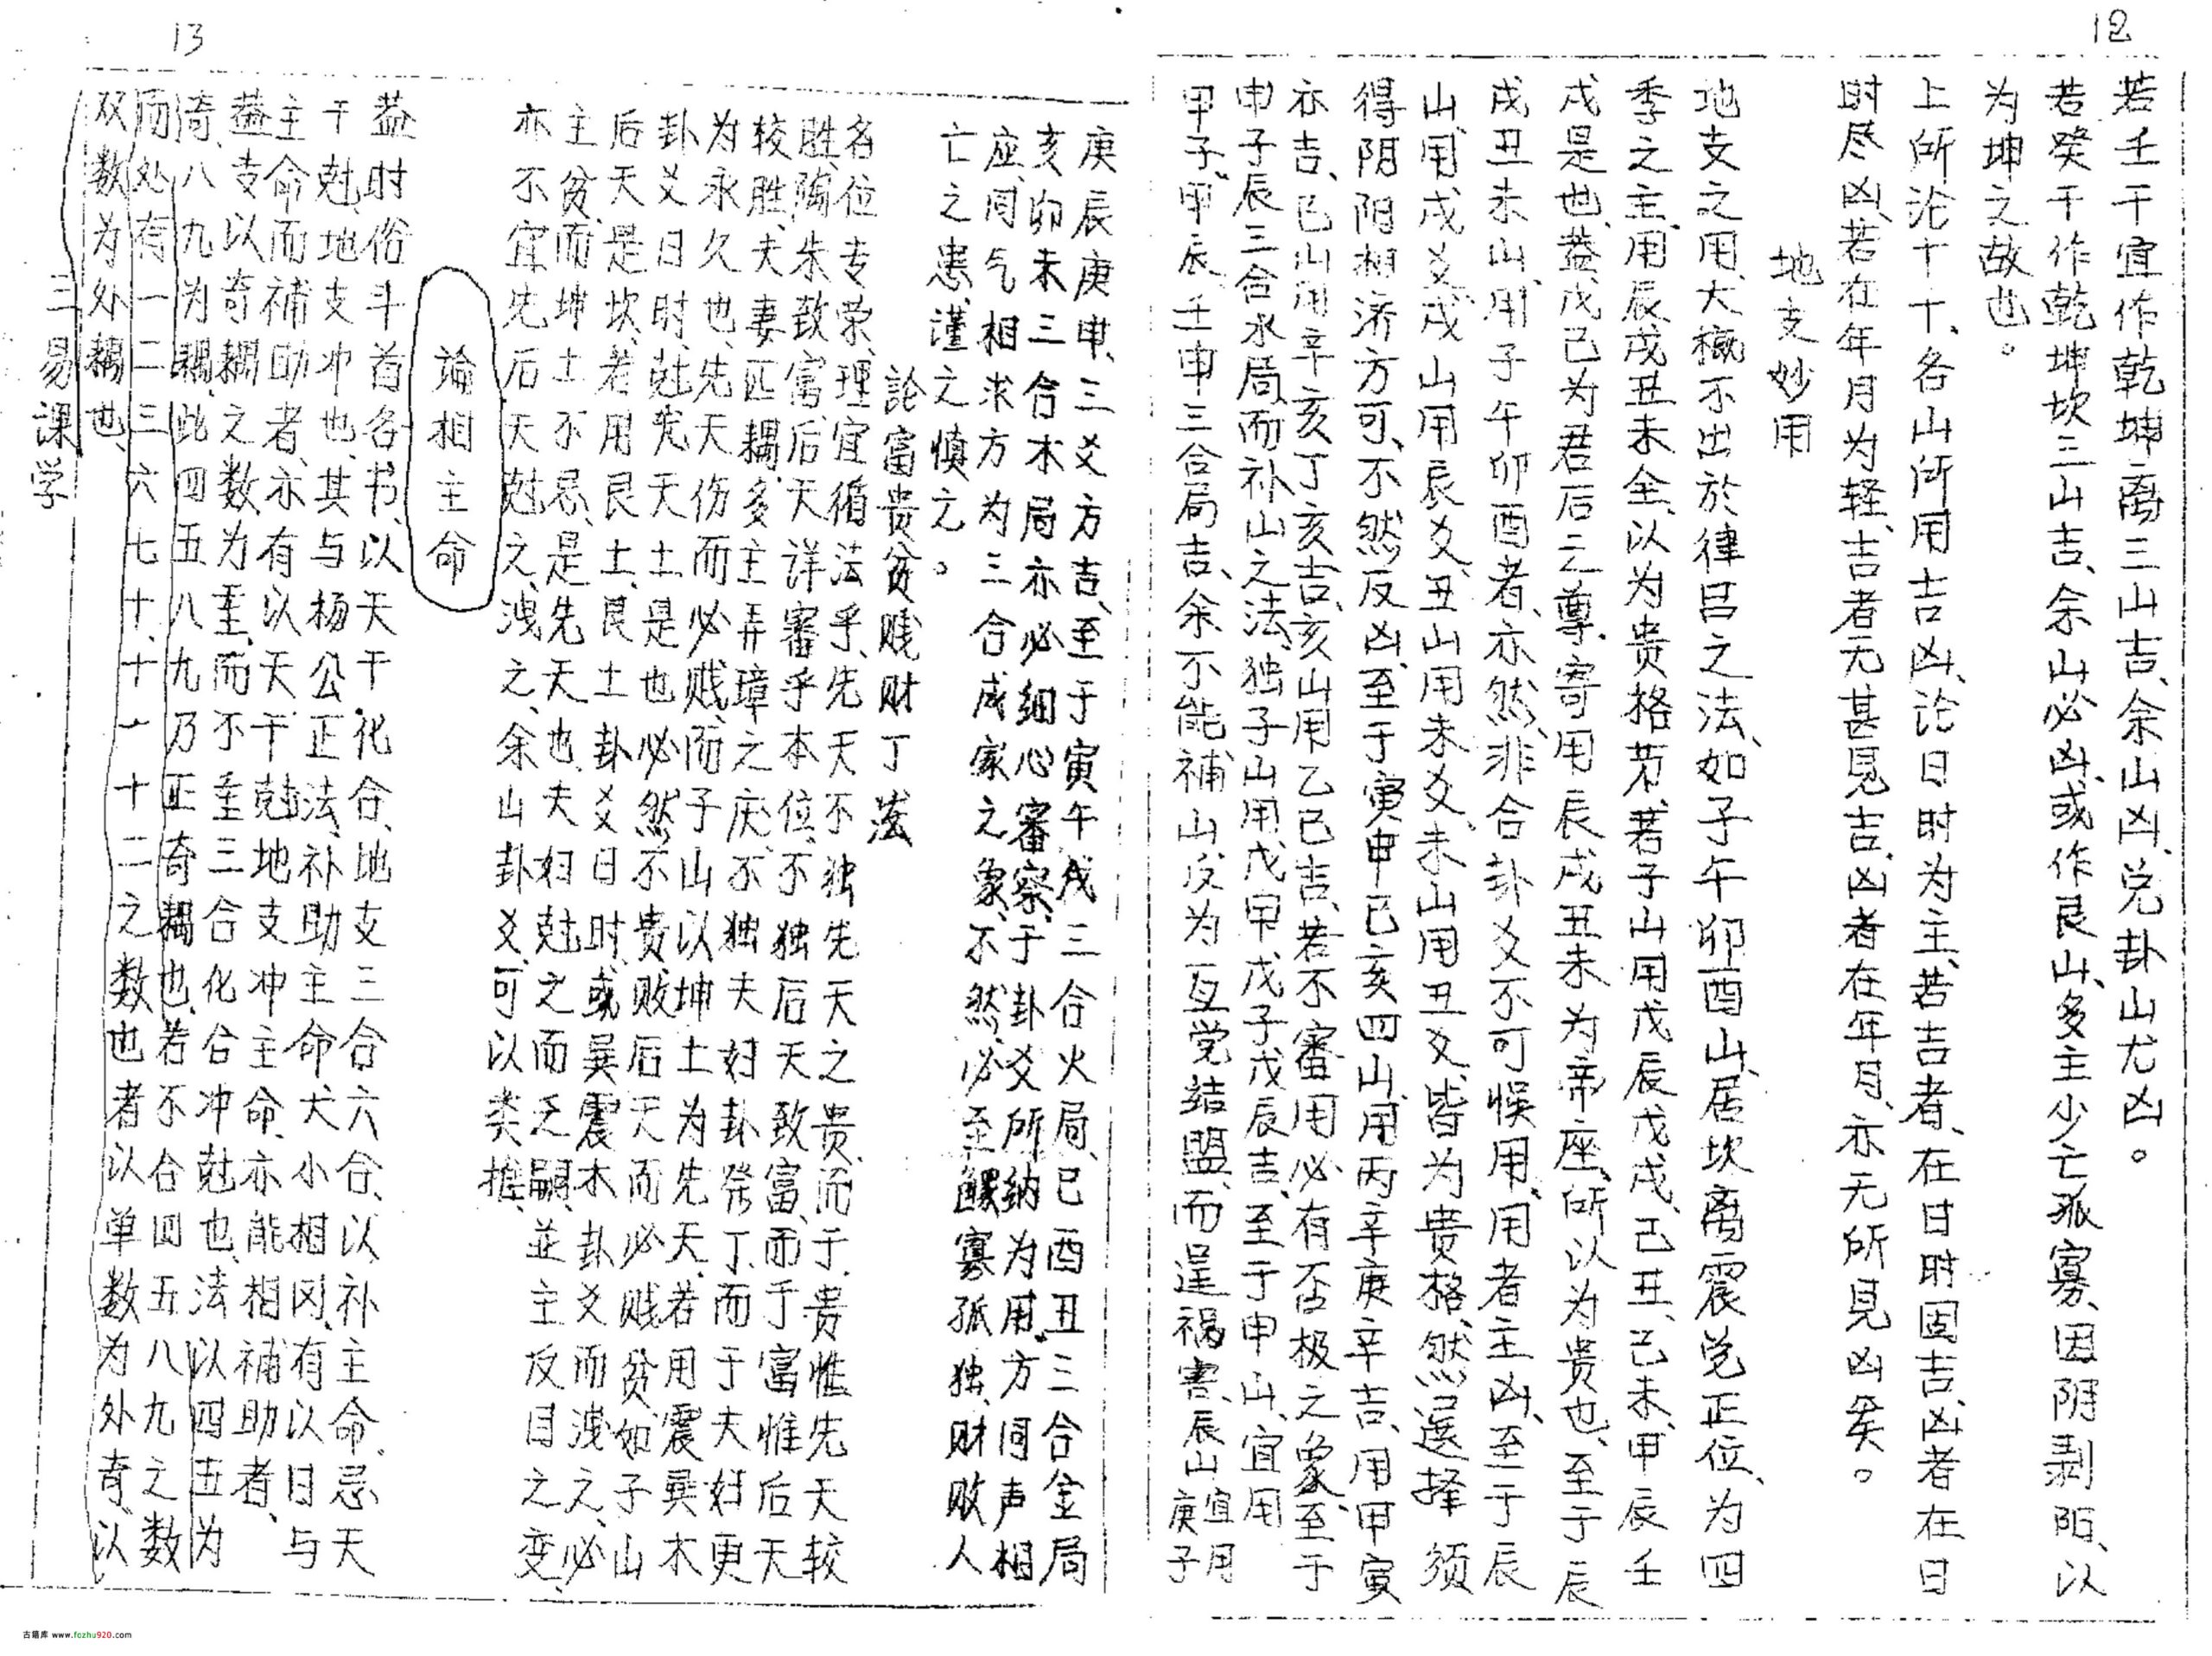 12
若壬干宜作乾坤离三山吉、余山凶、兑卦山尤凶。
若癸干作乾坤坎三山吉、余山必凶、或作艮山、多主少亡孤寡、因阴剥阳、以
为坤之故也。
上所论十干、各山所用吉凶、论日时为主、若吉者、在日时固吉、凶者在日
时尽凶、若在年月为轻、吉者无甚見吉、凶者在年月、亦无所見凶矣。
地支妙用
地支之用、大概不出於律吕之法、如子午卯酉山、居坎离震兑正位、为四
季之主、用辰戌丑未全、以为贵格、苐若子山用戊辰戊戌、己丑、己未、甲辰壬
戌是也、蓋戊己为君后之尊、寄用辰戌丑未为帝座、所以为贵也、至于辰
戌丑未山、用子午卯酉者、亦然、非合卦爻不可悮用、用者主凶、至于辰
山、用戌爻、戌山用辰爻、丑山用未爻、未山用丑爻、皆为贵格、然选择须
得阴阳相济方可、不然反凶、至于寅申巳亥四山、用丙辛庚辛吉、用甲寅
亦吉、巳山用辛亥丁亥吉、亥山用乙巳吉、若不審用必有否极之象、至于
申子辰三合水局、而补山之法、独子山用戊申、戊子戊辰吉、至于申山、宜用
甲子、甲辰、壬申三合局吉、余不能補山、反为互党结盟、而逞禍害、辰山宜用庚子
13
庚辰庚申、三爻方吉、至于寅午戌三合火局、巳酉丑三合金局
亥卯未三合木局亦必细心審察、于卦爻所纳为用、方同声相
应、同气相求方为三合成家之象、不然、必至鳏寡孤独、财败人
亡之患、谨之慎之。
論富贵贫贱财丁法
名位专荣、理宜循法乎、先天不独先天之贵、而于贵惟先天较
胜、陶朱致富、后天详審乎本位、不独后天致富、而于富惟后天
较胜、夫妻匹耦、多主弄璋之庆、不独夫妇卦荣丁、而于夫妇更
为永久也、先天伤而必贱、而子山以坤土为先天、若用震巽木
卦爻日时、尅先天土是也、必然不贵、败后天而必贱贫、如子山
后天是坎、若用艮土、艮土卦爻日时、或巽震木卦爻而洩之、必
主贫、而坤土不忌、是先天也、夫妇尅之而乏嗣、並主反目之变、
亦不宜先后天尅之、洩之、余山卦爻、可以类推、
論相主命
益时俗斗首各书、以天干化合、地支三合六合、以补主命、忌天
干尅、地支冲也、其与杨公正法、补助主命犬小相冈、有以日与
主命而補助者、亦有以天干尅地支冲主命、亦能相補助者、
蓋支以奇耦之数为重、而不重三合化合冲尅也、法以四五为
奇、八九为耦、此四五八九乃正奇耦也、若不合四五八九之数
而处有一二三六七十、十一十二之数也者以单数为外奇、以
双数为外耦也、
三易課学
古籍库 www.fozhu920.com